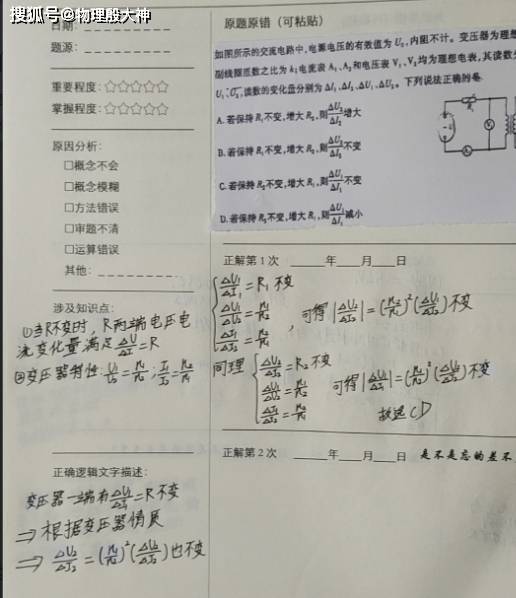 搜狐号@物理殷大神
日期:
题源:
重要程度:☆☆☆☆☆
掌握程度:☆☆☆☆☆
原因分析:
☐概念不会
☐概念模糊
☐方法错误
☐审题不清
☐运算错误
其他:
涉及知识点:
①当R不变时,R两端电压电
流变化量满足 ΔU/ΔI=R
②变压器特性: U₁/U₂=n₁/n₂; I₁/I₂=n₂/n₁
正确逻辑文字描述:
变压器一端有ΔU₁/ΔI₁=R不变
⇒根据变压器
⇒ ΔU₂/ΔI₂=(n₁/n₂)²(ΔU₂/ΔI₂)也不变
原题原错(可粘贴)
如图所示的交流电路中,电源电压的有效值为U₀,内阻不计。变压器为理想
副线圈匝数之比为k;电流表A₁、A₂和电压表V₁、V₂均为理想电表,其读数分
读数的变化量分别为ΔI₁、ΔI₂、ΔU₁、ΔU₂。下列说法正确的是
A.若保持R₁不变,增大R₂,则 增大
B.若保持R₁不变,增大R₂,则 不变
C.若保持R₂不变,增大R₁,则ΔU₁/ΔI₁不变
D.若保持R₂不变,增大R₁,则 减小
正解第1次 年 月 日
ΔU₁/ΔI₁=R₁不变
ΔU₁/ΔU₂=n₁/n₂
, 可得|ΔU₂/ΔI₂|=(n₂/n₁)²(ΔU₁/ΔI₁)不变
同理 ΔU₂/ΔI₂=R₂不变
ΔU₁/ΔU₂=n₁/n₂ 可得|ΔU₁/ΔI₁|=(n₁/n₂)²(ΔU₂/ΔI₂)不变
故选CD
正解第2次 年 月 日 是不是忘的差不